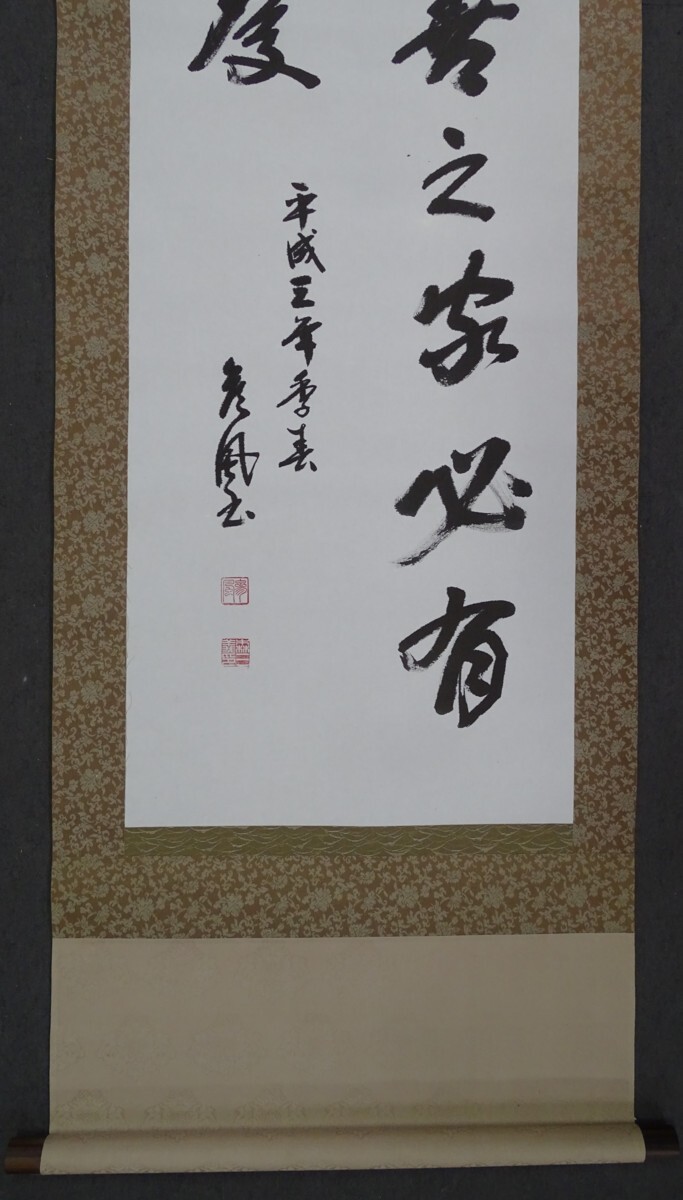 善之家必有
慶
平成三年季春
彦風書